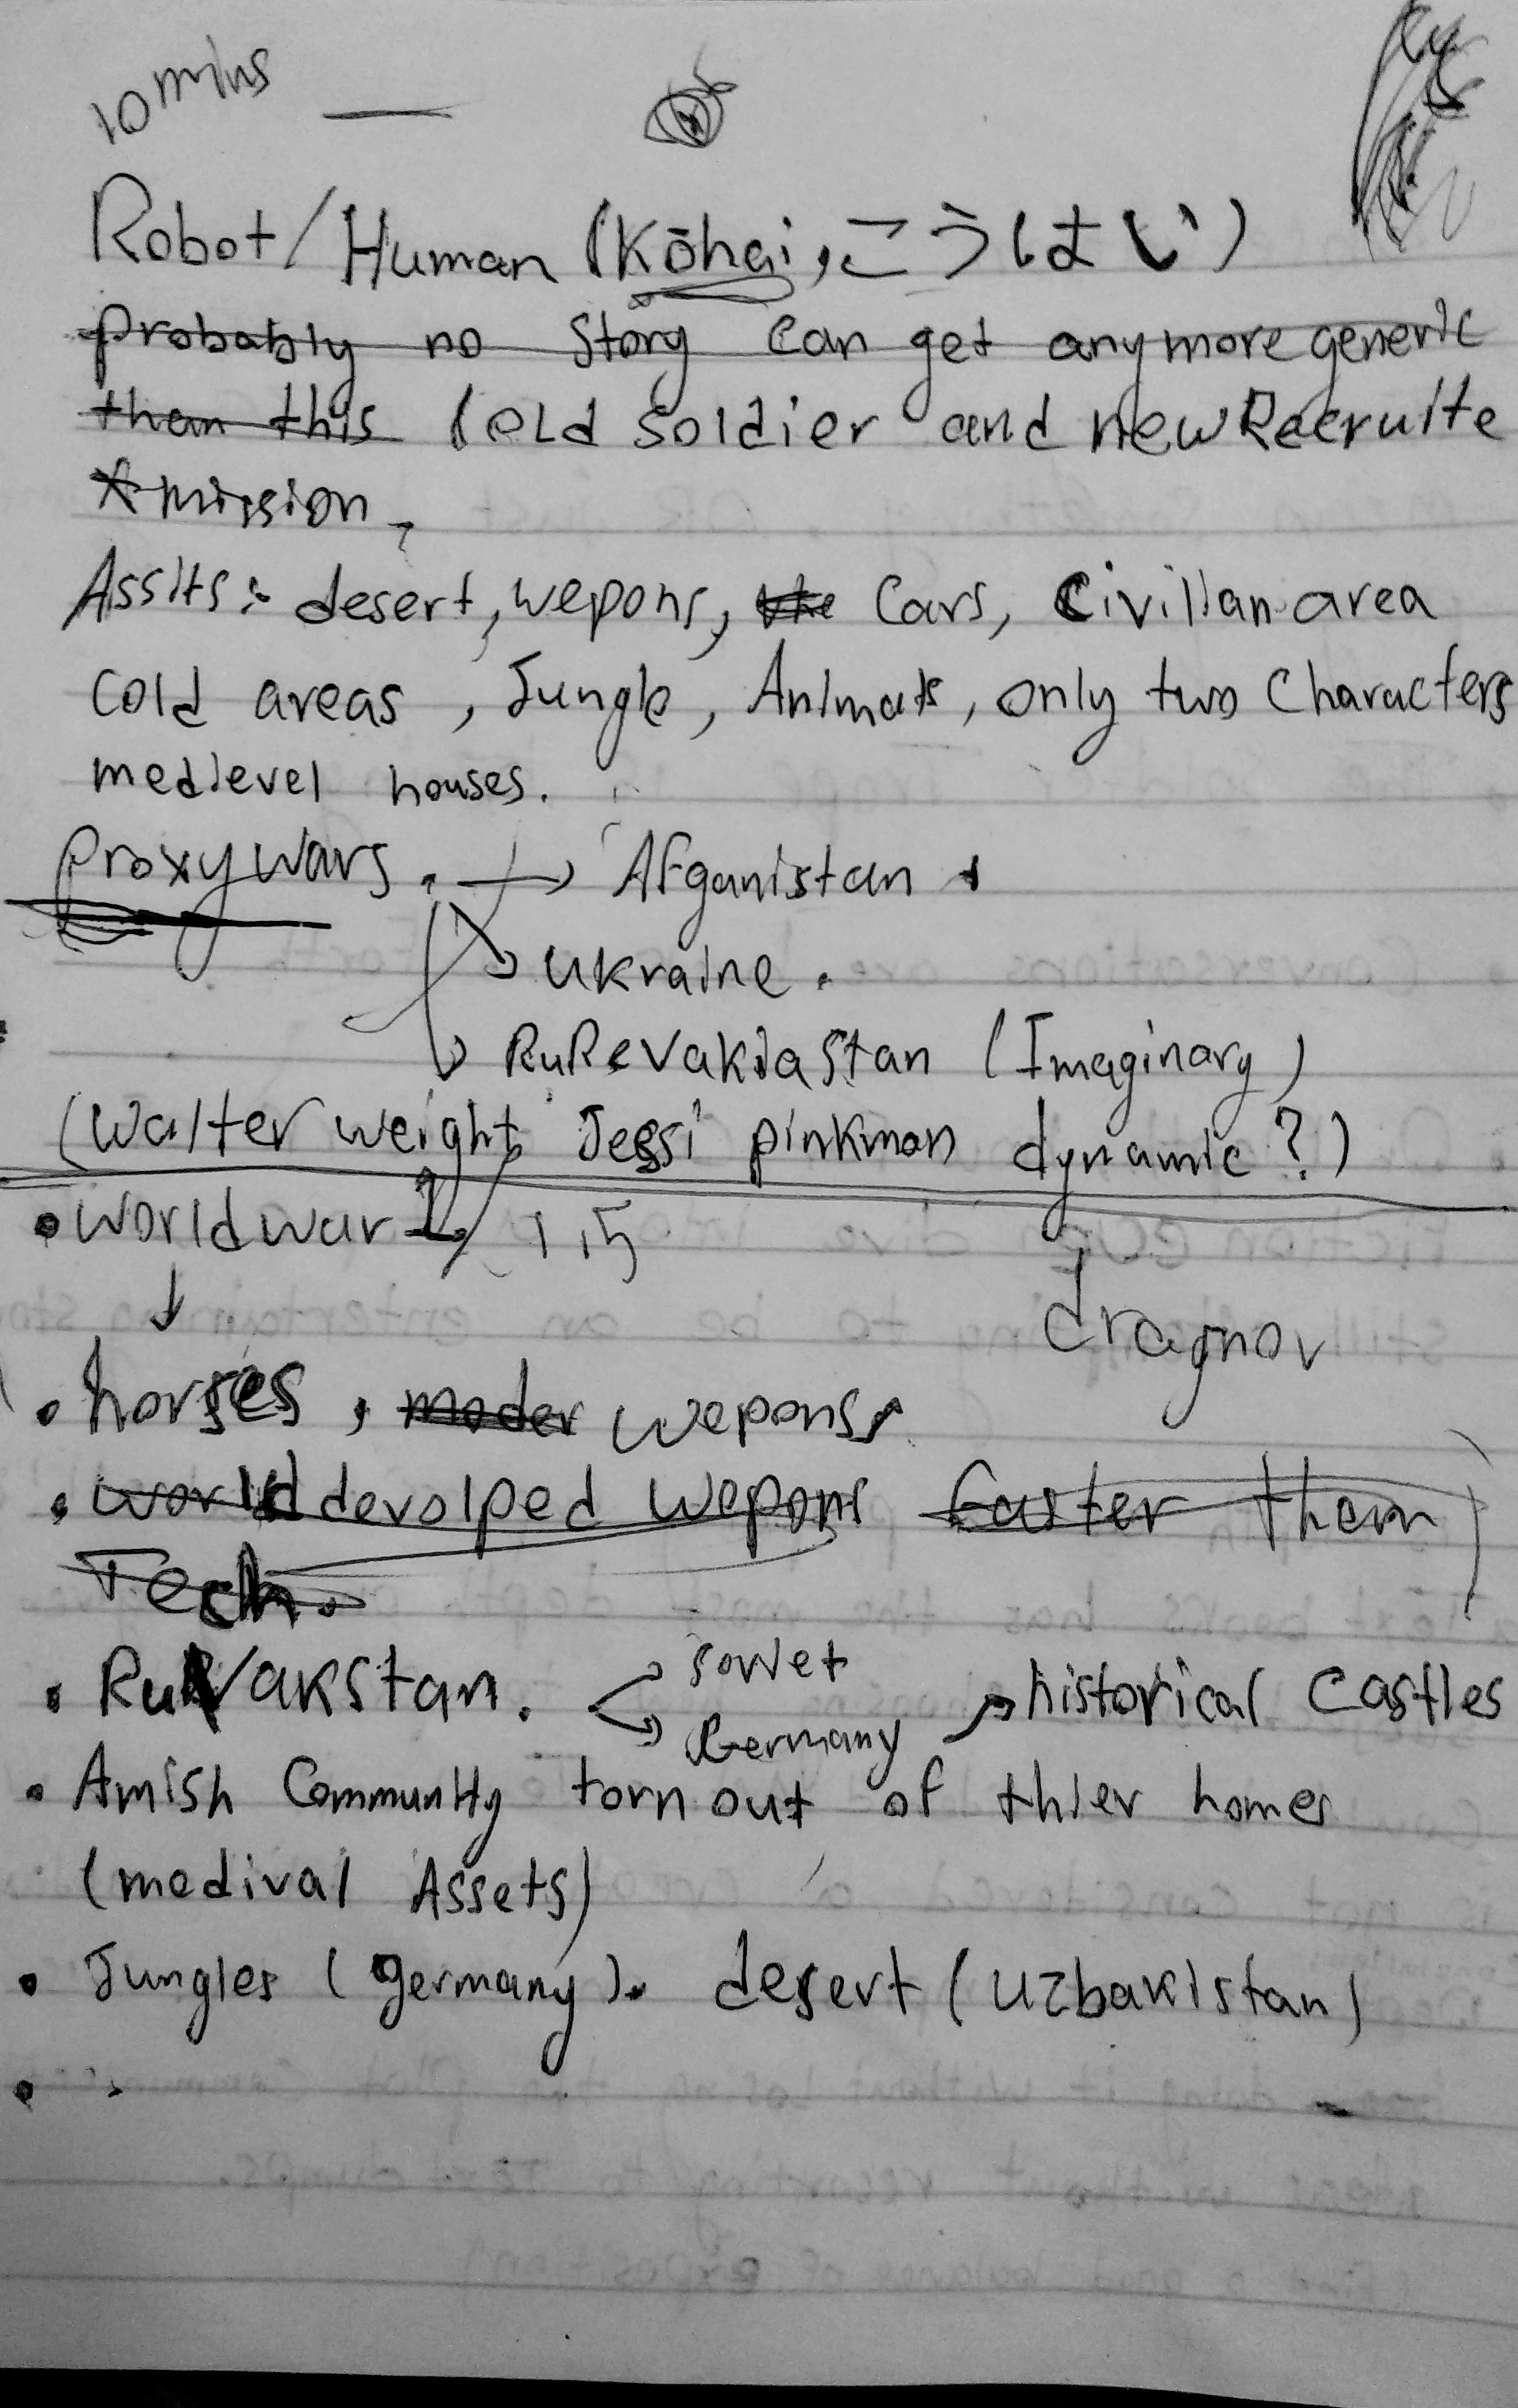 10 mins —
Robot/Human (Kōhai, こうはい)
probably no story can get anymore generic
than this (old soldier and new Recruite
mission
Assits: desert, wepons, cars, civillan area
cold areas, Jungle, Animals, only two characters
medievel houses.
Proxy wars. → Afganistan
→ Ukraine.
→ RuRevakiastan (Imaginary)
(Walter weight Jessi pinkman dynamic?)
• World war 1,5
dragnov
• horses, moder wepons
• world devolped wepons faster then
Tech.
• RuRVakstan. soviet
Germany → historical castles
• Amish Community torn out of thier homes
(medival Assets)
• Jungles (germany). desert (uzbakistan)